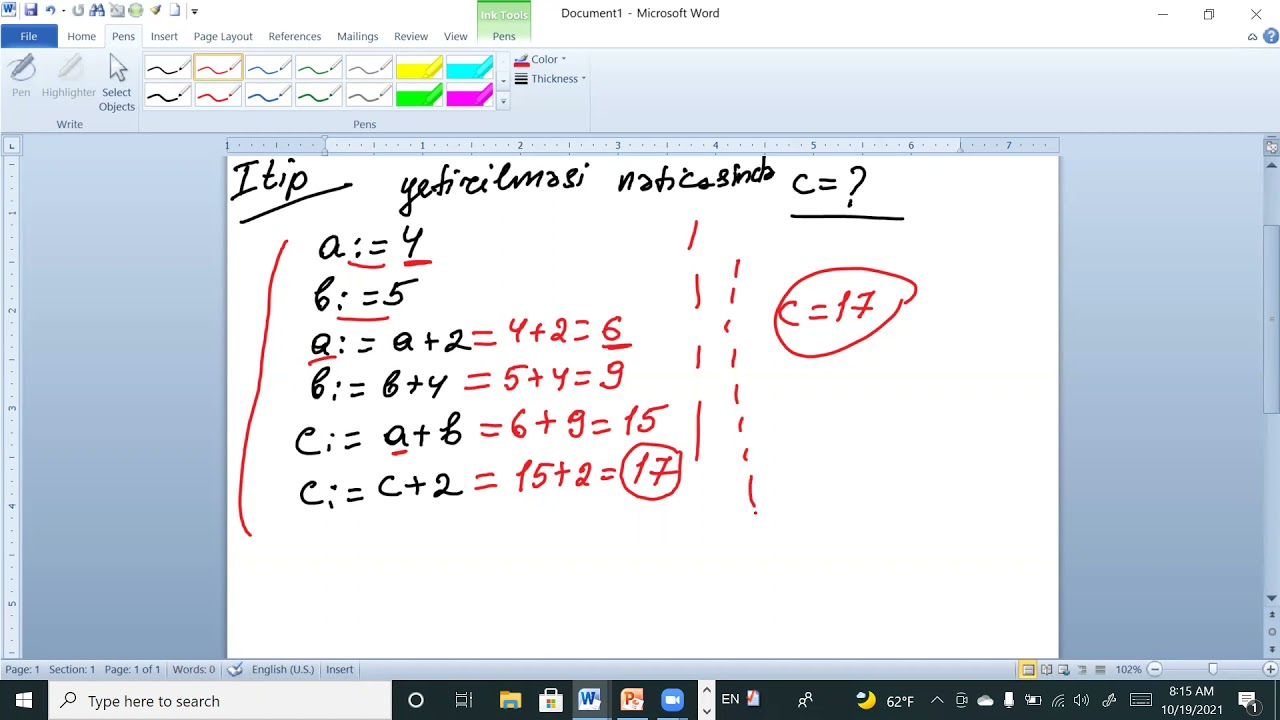 Ink Tools
Document1 - Microsoft Word
File Home Pens Insert Page Layout References Mailings Review View Pens
Pen Highlighter Select Objects
Color
Thickness
Write
Pens
1 1 2 3 4 5 6 7
I tip yetirilməsi nəticəsində c=?
a:=4
b:=5
a:=a+2=4+2=6
b:=b+4=5+4=9
c:=a+b=6+9=15
c:=c+2=15+2=17
c=17
1
2
3
4
5
Page: 1 Section: 1 Page: 1 of 1 Words: 0 English (U.S.) Insert 102%
Type here to search
EN 62°F 8:15 AM
10/19/2021
1